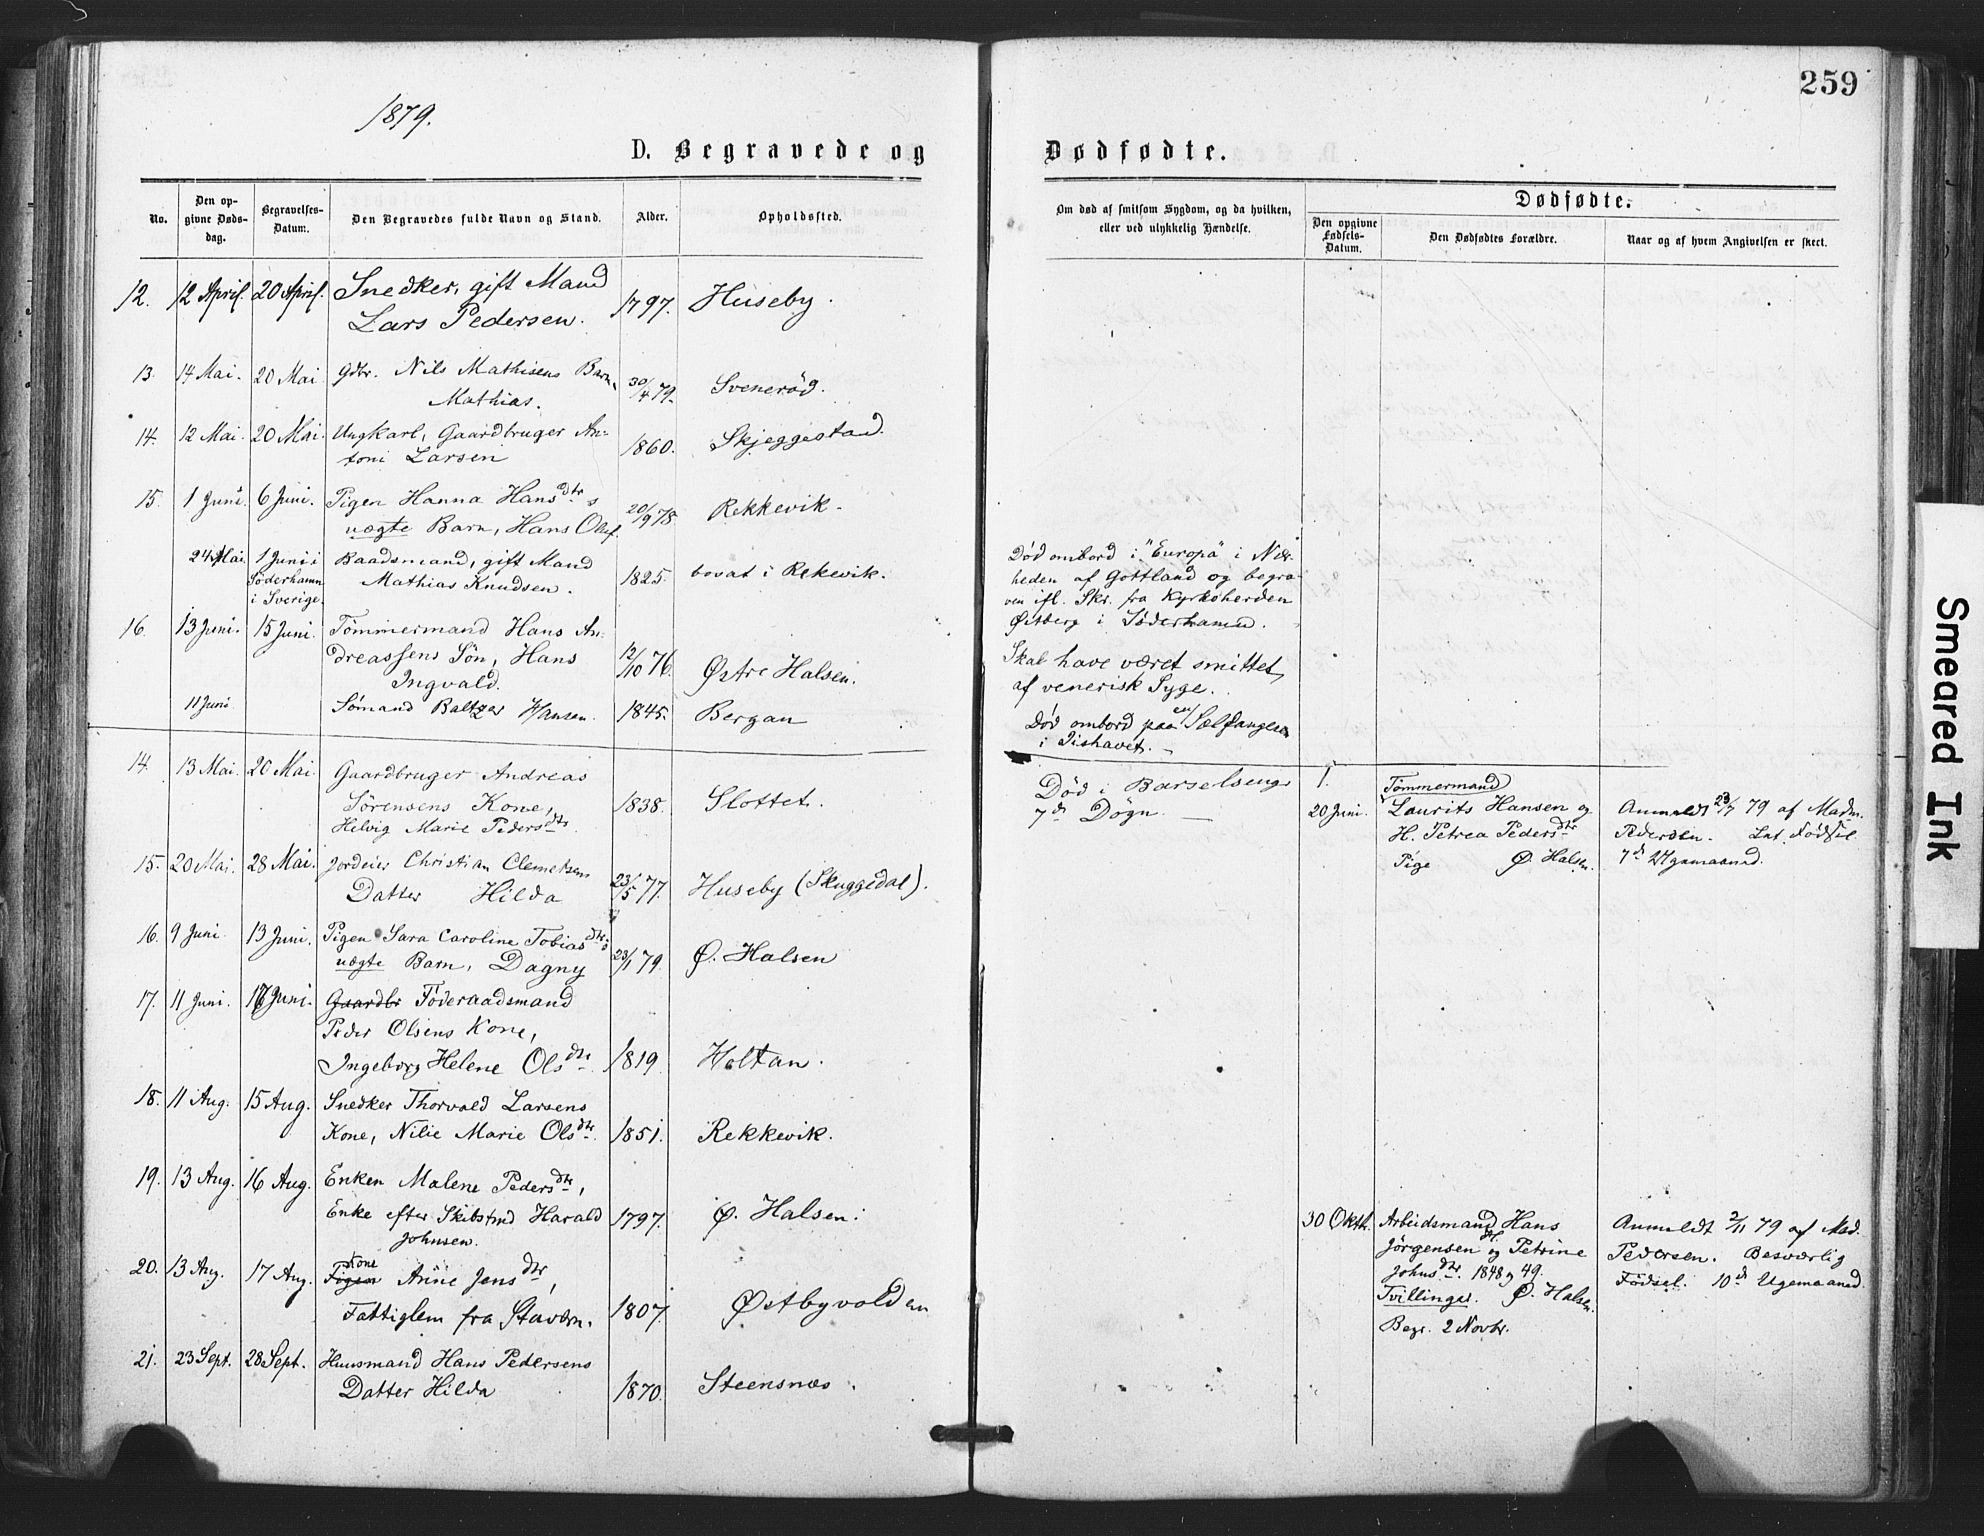 259
1879.
D. Begravede og Dødfødte.
No.
Den opgivne Dødsdag.
Begravelses-Datum.
Den Begravedes fulde Navn og Stand.
Alder.
Opholdssted.
Om død af smitsom Sygdom, og da hvilken,
eller ved ulykkelig Hændelse.
Dødfødte.
Den opgivne Fødsels-Datum.
Den Dødfødtes Forældre.
Naar og af hvem Angivelsen er skeet.
12. 12 April. 20 April. Snedker, gift Mand 1797. Huseby.
Lars Pedersen.
13. 14 Mai. 20 Mai Gdbr. Nils Mathisens Barn, 30/4 79. Svenerød.
Mathias.
14. 12 Mai. 20 Mai. Ungkarl, Gaardbruger An- 1860. Skjeggestad.
toni Larsen
15. 1 Juni. 6 Juni. Pigen Hanna Hansdtrs 20/9 78. Rekkevik.
uægte Barn, Hans Oluf
24 Mai 1 Juni i Baadsmand, gift Mand 1825. bosat i Rekevik.
Söderhamn Mathias Knudsen.
i Sverige.
Død ombord i "Europa" i Nær-
heden af Gottland og begra-
ven ifl. Skr. fra Kyrkoherden
Østberg i Söderhamn.
16. 13 Juni. 15 Juni. Tømmermand Hans An- 12/10 76. Østre Halsen.
dreassens Søn, Hans
Ingvald.
Skal have været smittet
af venerisk Syge.
11 Juni Sømand Baltzer Hansen. 1845. Bergan
Død ombord paa en Sælfanger
i Ishavet.
14. 13 Mai. 20 Mai. Gaardbruger Andreas 1838. Slottet.
Sørensens Kone,
Helvig Marie Pedersdtr.
Død i Barselseng
7de Døgn.
1.
20 Juni. Tømmermand
Laurits Hansen og
H. Petrea Pedersdtr
Pige Ø. Halsen.
Anmeldt 23/7 79 af Madm.
Pedersen. Fødsel
7de Ugemaaned.
15. 20 Mai. 28 Mai. Jordeier Christian Clemetsens 23/5 77. Huseby (Skuggedal).
Datter Hilda
16. 9 Juni. 13 Juni. Pigen Sara Caroline Tobiasdtrs 23/1 79. Ø. Halsen
uægte Barn, Dagny
17. 11 Juni. 17 Juni. Gaardbr Føderaadsmand
Peder Olsens Kone,
Ingeborg Helene Olsdtr 1819 Holtan.
18. 11 Aug. 15 Aug. Snedker Thorvald Larsens
Kone, Nilie Marie Olsdtr. 1851. Rekkevik.
19. 13 Aug. 16 Aug. Enken Malene Pedersdtr,
Enke efter Skibstmd Harald 1797. Ø. Halsen.
Johnsen.
20. 13 Aug. 17 Aug. Kone
Pigen Anne Jensdtr,
Fattiglem fra Stavern. 1807. Østbyvolden
30 Oktbr. Arbeidsmand Hans
Jørgensen og Petrine
Johnsdtr. 1848 og 49.
Tvillinger. Ø. Halsen.
Begr. 2 Novbr.
Anmeldt 2/11 79 af Mad.
Pedersen. Besværlig
Fødsel. 10de Ugemaaned.
21. 23 Sept. 28 Sept. Huusmand Hans Pedersens
Datter Hilda 1870. Steensnæs.
Smeared Ink